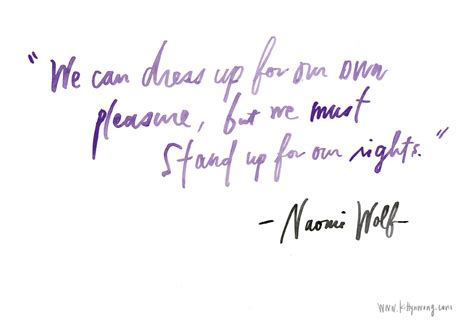 "We can dress up for our own
pleasure, but we must
stand up for our rights."
- Naomi Wolf
www.kittynwong.com